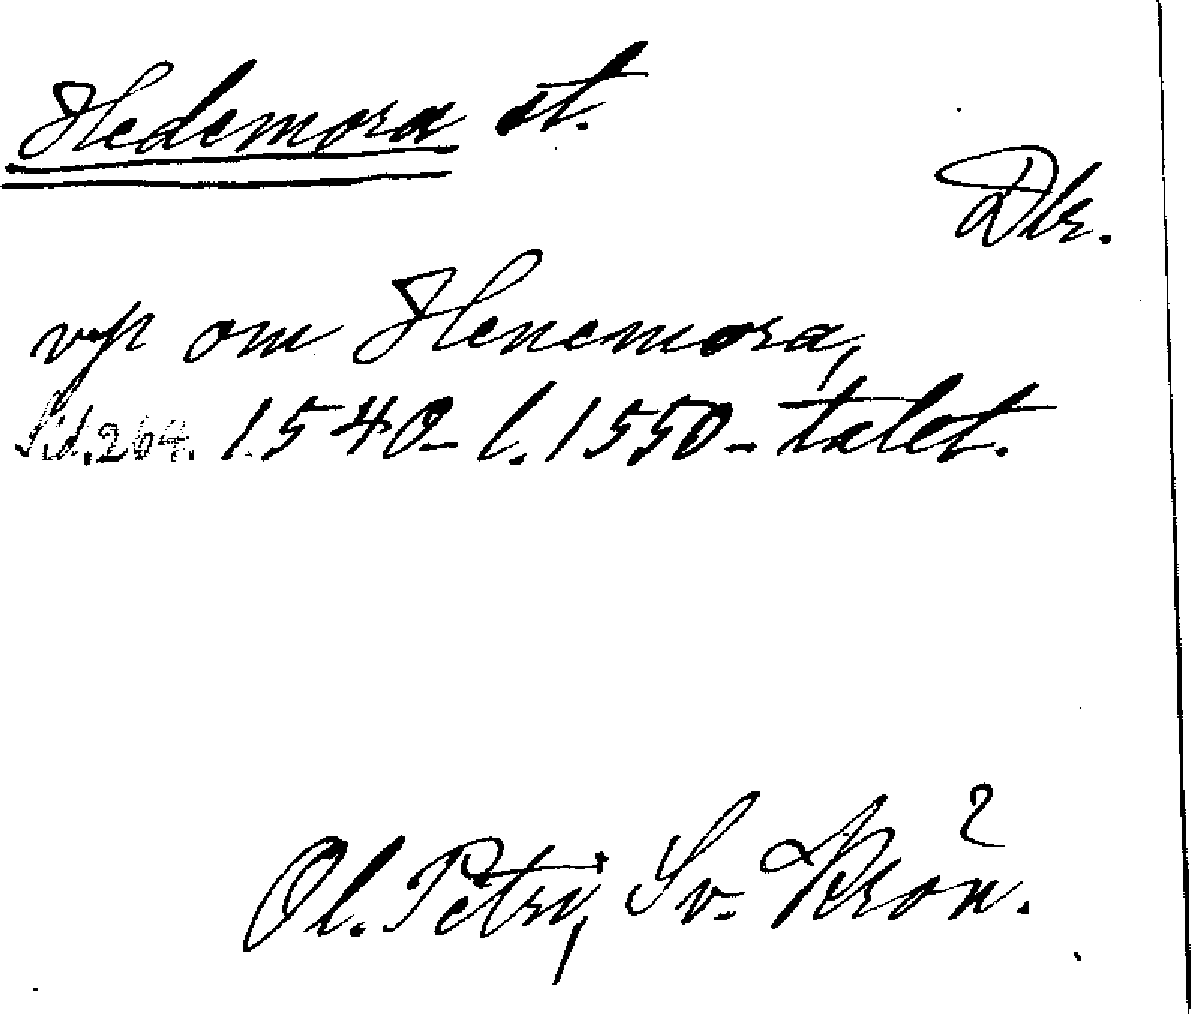 Hedemora st.
Dlr.
vp om Henemora,
Sid. 264. 1540- l. 1550-talet.
Ol. Petri, Sv. Krön. 2